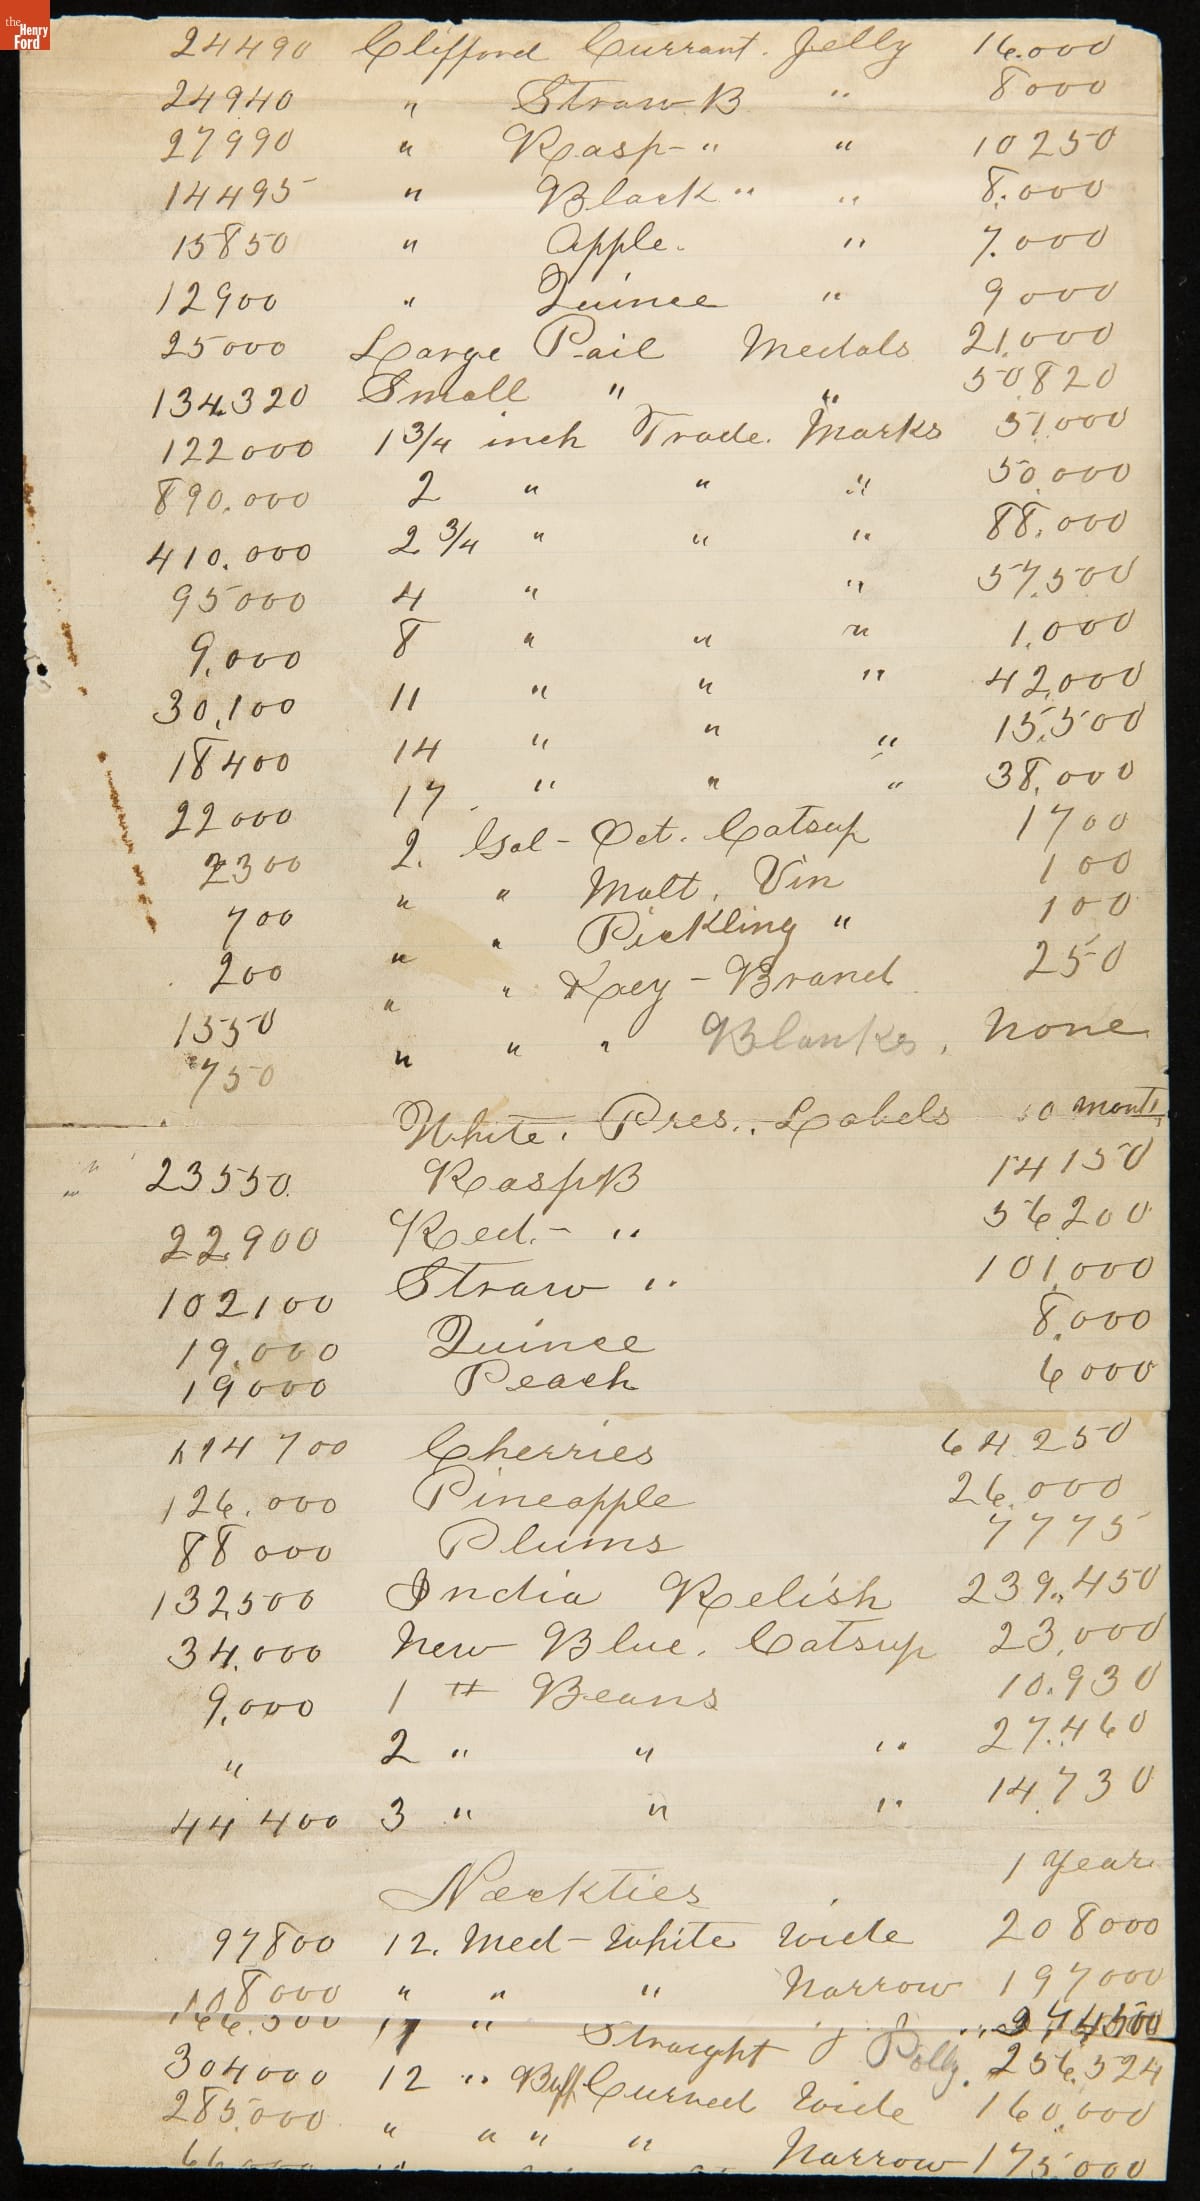 the Henry Ford
24490 Clifford Currant. Jelly 16.000
24940 " Straw B " 8000
27990 " Rasp- " " 10250
14495 " Black " " 8.000
15850 " Apple. " 7.000
12900 " Quince " 9000
25000 Large Pail Medals 21.000
134.320 Small " " 50.820
122000 1 3/4 inch Trade. Marks 51.000
890.000 2 " " " 50.000
410.000 2 3/4 " " " 88.000
95000 4 " " 57.500
9.000 8 " " " 1.000
30.100 11 " " " 42.000
18400 14 " " " 15.500
22000 17 " " " 38.000
2300 2. Gal - Oct. Catsup 1700
700 " " Malt. Vin 100
200 " " Pickling " 100
1550 " " Key - Brand 250
750 " " " Blanks. None
White. Pres.. Labels 10 month
23550. RaspB 14150
22900 Red.- " 56200
102100 Straw " 101.000
19.000 Quince 8.000
19000 Peach 6000
114700 Cherries 64250
126.000 Pineapple 26.000
88000 Plums 7775
132500 India Relish 239.450
34.000 New Blue. Catsup 23.000
9.000 1 # Beans 10.930
" 2 " " " 27.460
44400 3 " " " 14.730
Neckties 1 Year
97800 12. Med - White Wide 208000
108000 " " " Narrow 197000
166.500 17 " Straight
304000 12 " Buff Curved Wide Polly. 256.524
285.000 " " " " Narrow 160.000
175.000